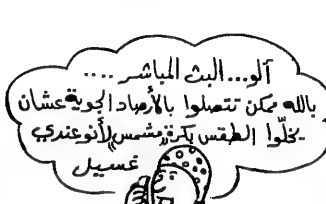 آلو... البث المباشر ....
بالله ممكن تتصلوا بالأرصاد الجوية عشان
يخلّوا الطقس بكرة "مشمس" لأنو عندي
غسيل